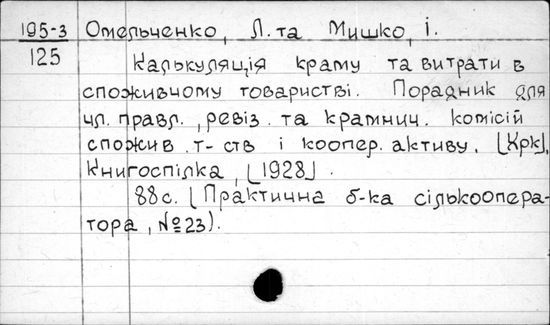 195-3 Омельченко, Л. та Мишко, І.
125
Калькуляція краму та витрати в
споживчому товаристві. Порадник для
чл. правл., ревіз. та крамнич. комісій
спожив. т-ств і коопер. активу. [Хрк],
Книгоспілка, [1928].
88 с. (Практична б-ка сількоопера-
тора, №23).